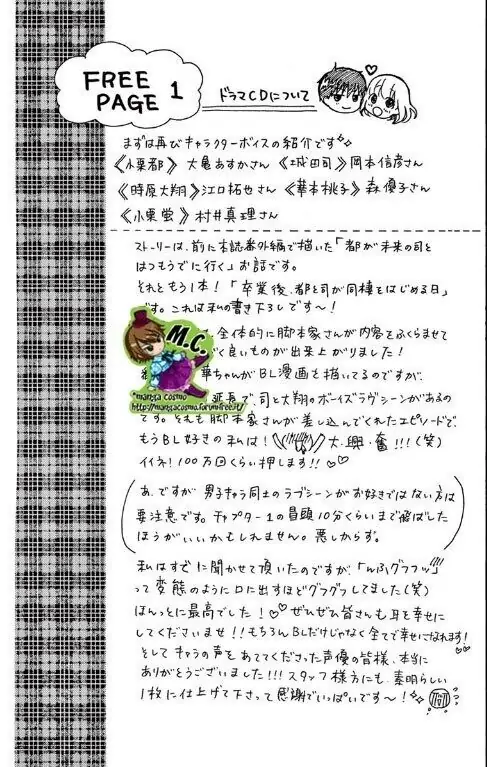 FREE
PAGE 1
ドラマCDについて
まずは再びキャラクターボイスの紹介です
《小栗都》 大亀あすかさん 《城田司》岡本信彦さん
《時原大翔》江口拓也さん 《華本桃子》森優子さん
《小栗蛍》村井真理さん
ストーリーは、前に本誌番外編で描いた「都が未来の司と
はつもうでに行く」お話です。
それともう1本!「卒業後、都と司が同棲をはじめる日」
です。これは私の書き下ろしです〜!
全体的に脚本家さんが内容をふくらませて
く良いものが出来上がりました!
華ちゃんがBL漫画を描いてるのですが、
延長で、司と大翔のボーイズラブシーンがあるの
です。それも脚本家さんが差し込んでくれたエピソードで、
もうBL好きの私は! 大・興・奮!!!(笑)
イイネ!100万回くらい押します!!♡♡
M.C.
*manga cosmo
http://mangacosmo.forumfree.it/
あ、ですが男子キャラ同士のラブシーンがお好きではない方は
要注意です。チャプター1の冒頭10分くらいまで飛ばした
ほうがいいかもしれません。悪しからず。
私はすでに聞かせて頂いたのですが「んふグフフッ!!」
って変態のように口に出すほどグフグフしてました(笑)
ほんっとに最高でした!♡♡ぜひぜひ皆さんも耳を幸せに
してくださいませ!!もちろんBLだけじゃなく全てで幸せになれます!
そしてキャラの声をあててくださった声優の皆様、本当に
ありがとうございました!!!スタッフ様方にも、素晴らしい
1枚に仕上げて下さって感謝でいっぱいです〜!